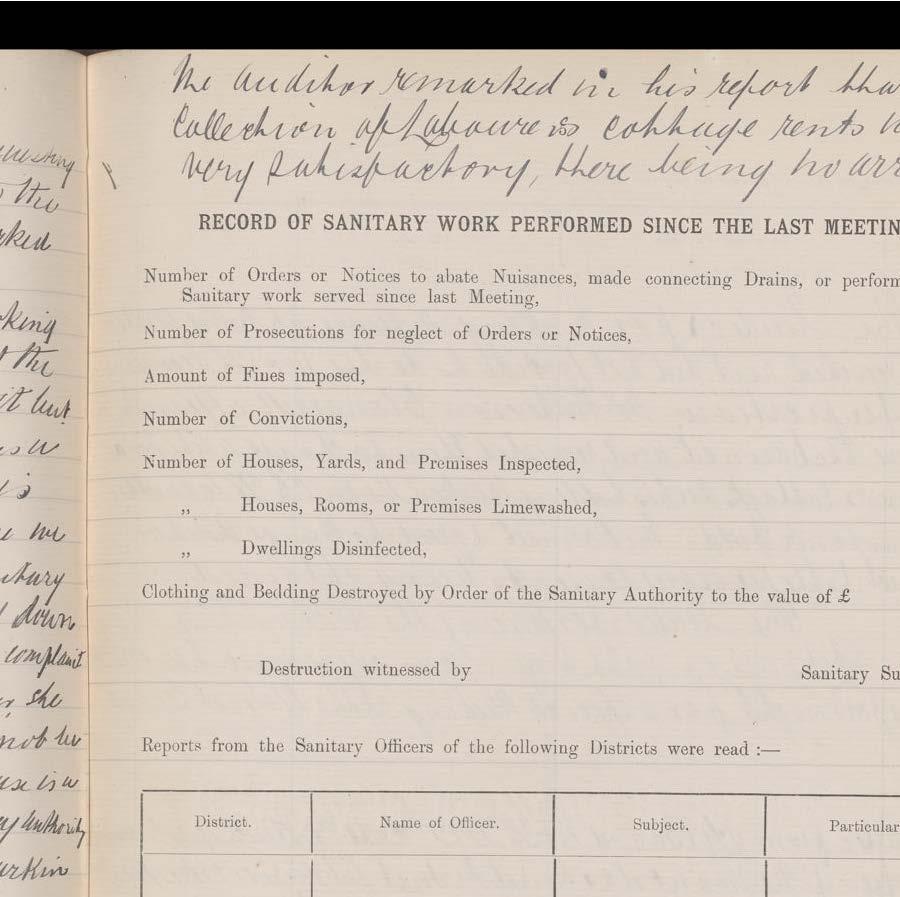 the
rked
king
the
it but
is
me
down
complaint
she
not be
use is a
authority
The auditor remarked in his report tha
Collection of Labourers cottage rents
very satisfactory, there being no arr
RECORD OF SANITARY WORK PERFORMED SINCE THE LAST MEETIN
Number of Orders or Notices to abate Nuisances, made connecting Drains, or perform
Sanitary work served since last Meeting,
Number of Prosecutions for neglect of Orders or Notices,
Amount of Fines imposed,
Number of Convictions,
Number of Houses, Yards, and Premises Inspected,
„ Houses, Rooms, or Premises Limewashed,
„ Dwellings Disinfected,
Clothing and Bedding Destroyed by Order of the Sanitary Authority to the value of £
Destruction witnessed by Sanitary Su
Reports from the Sanitary Officers of the following Districts were read :—
District. Name of Officer. Subject. Particular